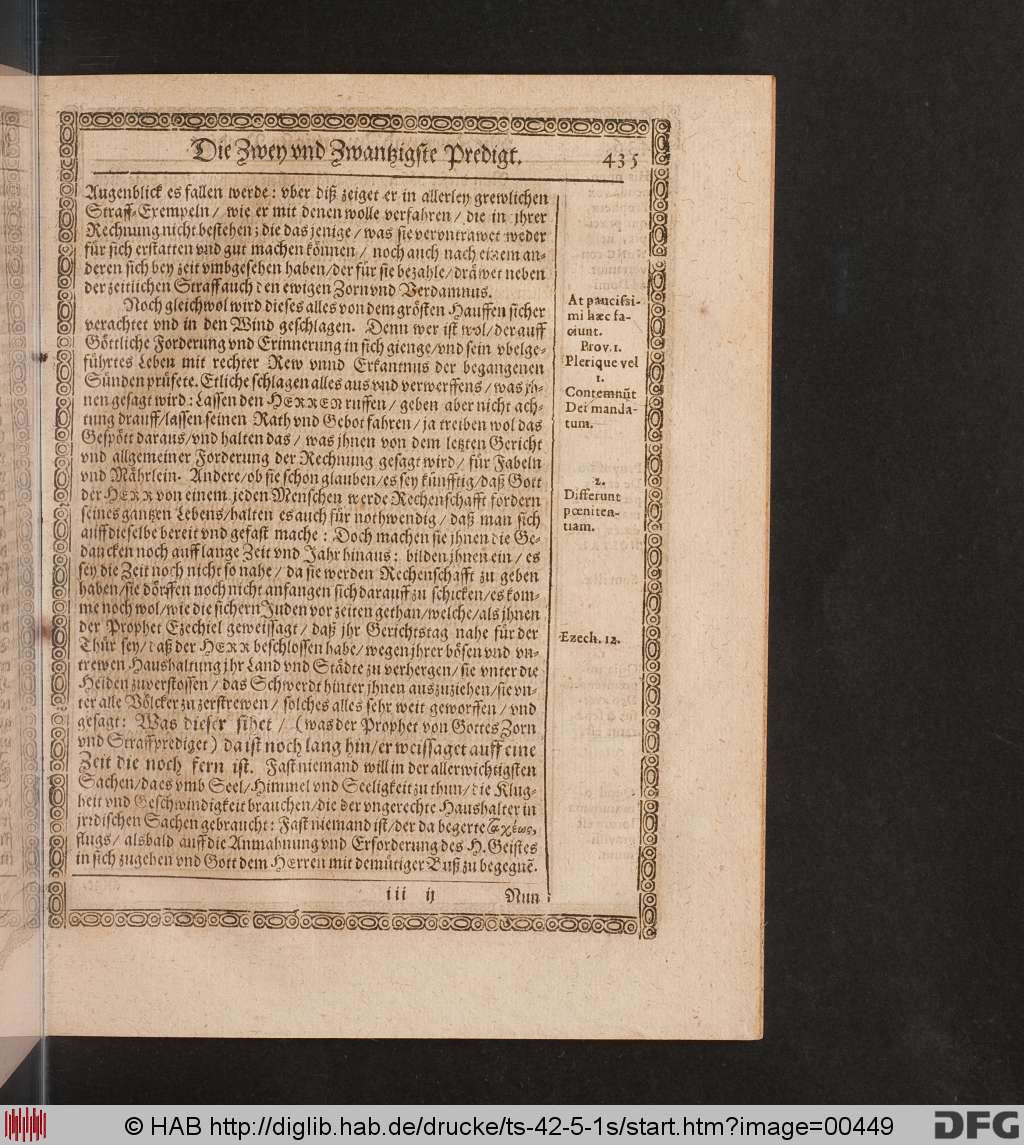 Die Zwey vnd Zwantzigste Predigt. 435
Augenblick es fallen werde: vber diß zeiget er in allerley grewlichen
Straff-Exempeln / wie er mit denen wolle verfahren / die in jhrer
Rechnung nicht bestehen; die das jenige / was sie vervntrawet weder
für sich erstatten vnd gut machen können / noch auch nach einem an-
deren sich bey zeit vmbgesehen haben / der für sie bezahle / dräwet neben
der zeitlichen Straff auch den ewigen Zorn vnd Verdamnus.
Noch gleichwol wird dieses alles von dem grösten Hauffen sicher
verachtet vnd in den Wind geschlagen. Denn wer ist wol / der auff
Göttliche Forderung vnd Erinnerung in sich gienge / vnd sein vbelge-
führtes Leben mit rechter Rew vnnd Erkantnus der begangenen
Sünden prüfete. Etliche schlagen alles aus vnd verwerffens / was jh-
nen gesagt wird: Lassen den HERREN ruffen / geben aber nicht ach-
tung drauff / lassen seinen Rath vnd Gebot fahren / ja treiben wol das
Gespött daraus / vnd halten das / was jhnen von dem letzten Gericht
vnd allgemeiner Forderung der Rechnung gesagt wird / für Fabeln
vnd Mährlein. Andere / ob sie schon glauben / es sey künfftig / daß Gott
der HERR von einem jeden Menschen werde Rechenschafft fordern
seines gantzen Lebens / halten es auch für nothwendig / daß man sich
auff dieselbe bereit vnd gefast mache: Doch machen sie jhnen die Ge-
dancken noch auff lange Zeit vnd Jahr hinaus: bilden jhnen ein / es
sey die Zeit noch nicht so nahe / da sie werden Rechenschafft zu geben
haben / sie dörffen noch nicht anfangen sich darauff zu schicken / es kom-
me noch wol / wie die sichern Juden vor zeiten gethan / welche / als jhnen
der Prophet Ezechiel geweissagt / daß jhr Gerichtstag nahe für der
Thür sey / daß der HERR beschlossen habe / wegen jhrer bösen vnd vn-
trewen Haushaltung jhr Land vnd Städte zu verhergen / sie vnter die
Heiden zuverstossen / das Schwerdt hinter jhnen auszuziehen / sie vn-
ter alle Völcker zu zerstrewen / solches alles sehr weit geworffen / vnd
gesagt: Was dieser sihet / (was der Prophet von Gottes Zorn
vnd Straff prediget) da ist noch lang hin / er weissaget auff eine
Zeit die noch fern ist. Fast niemand will in der allerwichtigsten
Sachen / da es vmb Seel / Himmel vnd Seeligkeit zu thun / die Klug-
heit vnd Geschwindigkeit brauchen / die der vngerechte Haushalter in
jridischen Sachen gebraucht: Fast niemand ist / der da begerte ταχέως,
flugs / alsbald auff die Anmahnung vnd Erforderung des H. Geistes
in sich zugehen vnd Gott dem Herren mit demütiger Buß zu begegnē.
iii ij Nun
At paucissi-
mi hæc fa-
ciunt.
Prov. 1.
Plerique vel
1.
Contemnūt
Dei manda-
tum.
2.
Differunt
pœniten-
tiam.
Ezech. 12.
© HAB http://diglib.hab.de/drucke/ts-42-5-1s/start.htm?image=00449
DFG